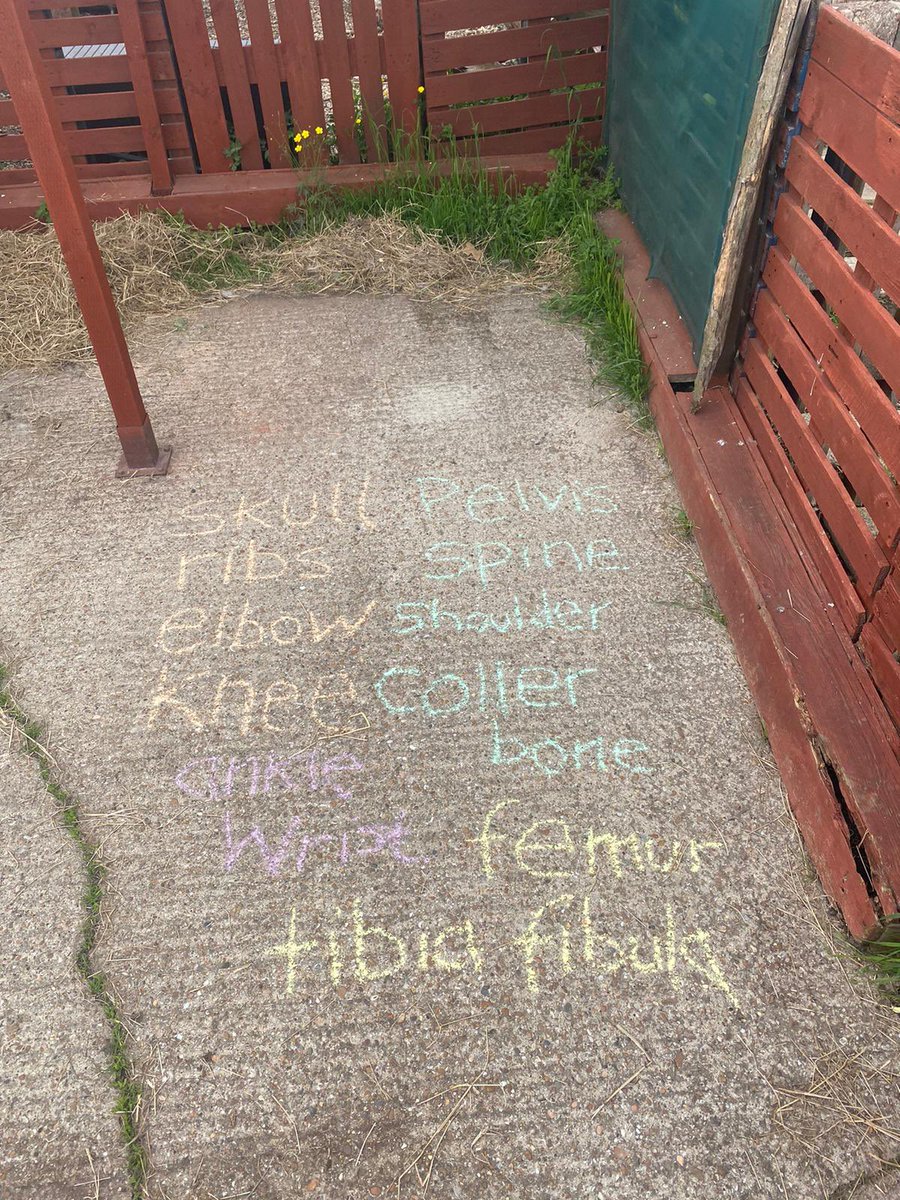 skull Pelvis
ribs spine
elbow shoulder
knee coller
bone
ankle
Wrist femur
tibia fibula